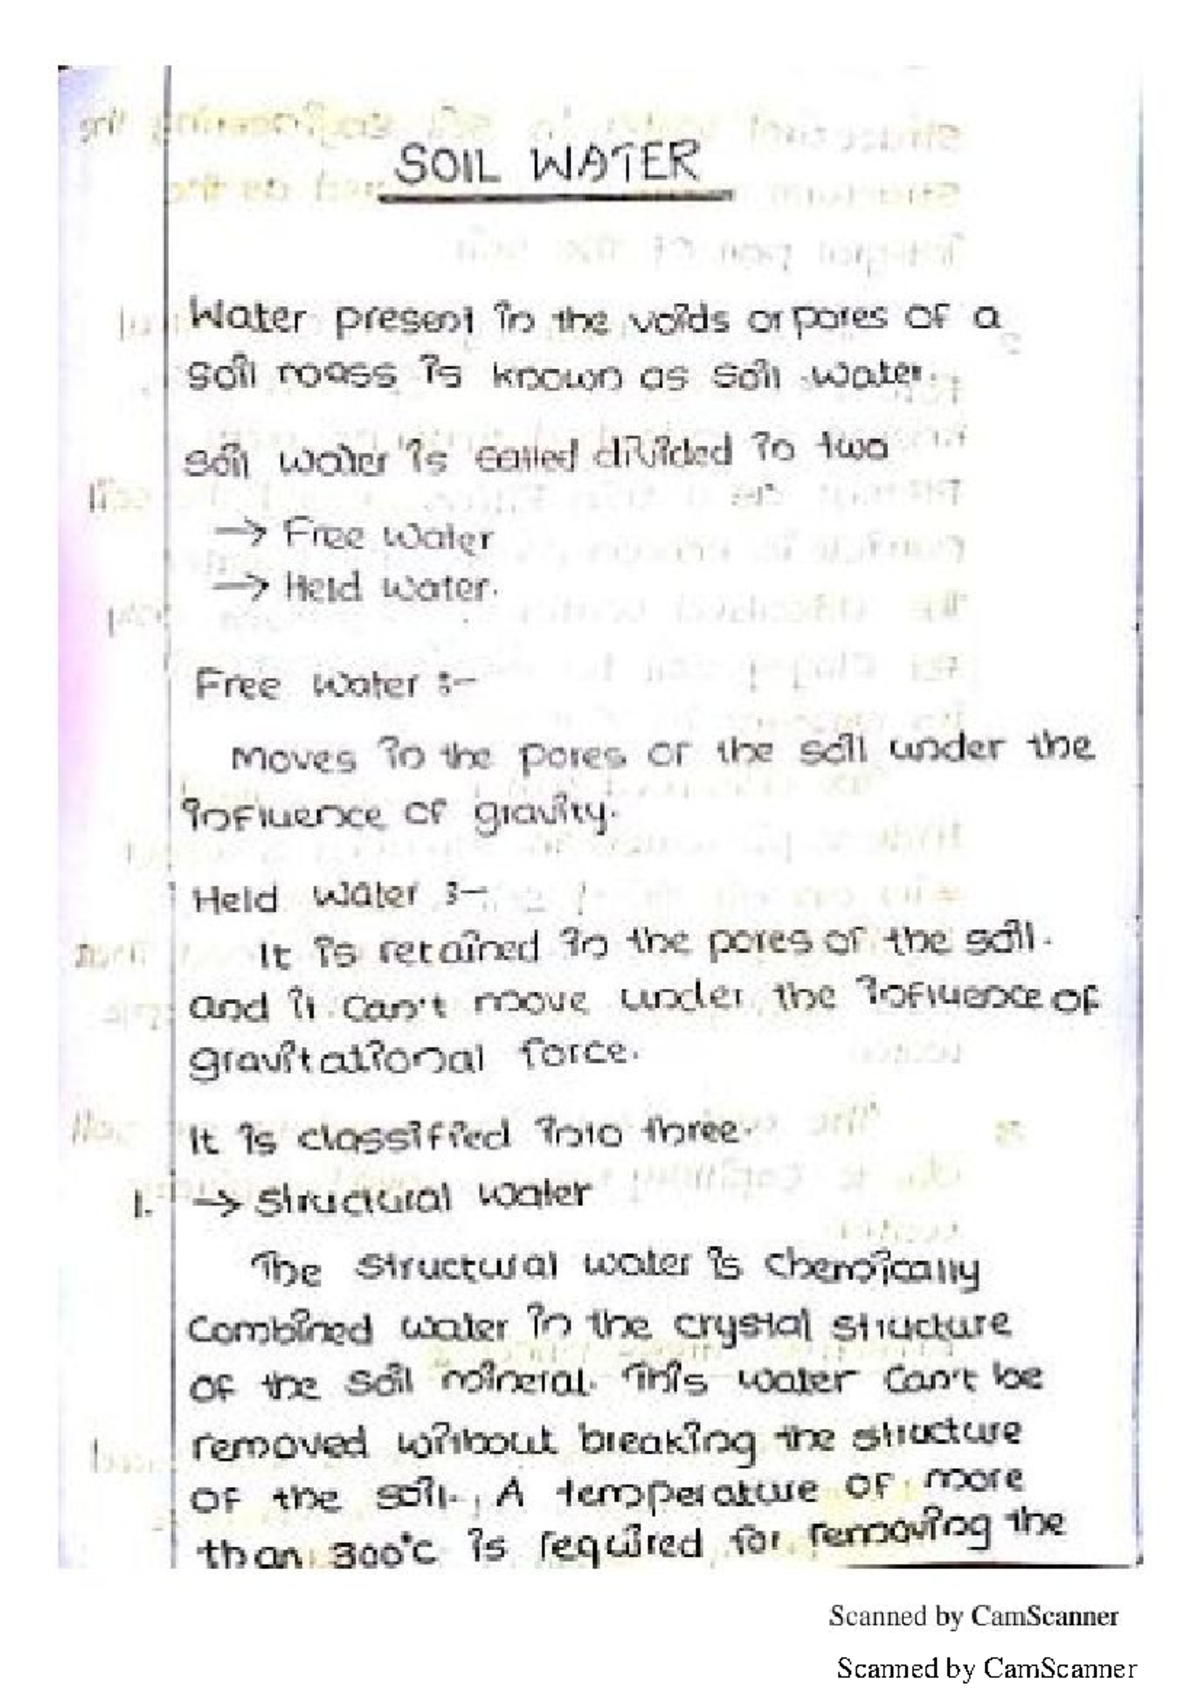 SOIL WATER
Water present in the voids or pores of a
soil mass is known as soil water.
soil water is called divided in two
→ Free water
→ Held water.
Free water :-
moves in the pores of the soil under the
influence of gravity.
Held water :-
It is retained in the pores of the soil.
and it can't move under the influence of
gravitational force.
It is classified into three.
1. → structural water
The structural water is chemically
combined water in the crystal structure
of the soil mineral. This water can't be
removed without breaking the structure
of the soil. A temperature of more
than 300°C is required for removing the
Scanned by CamScanner
Scanned by CamScanner